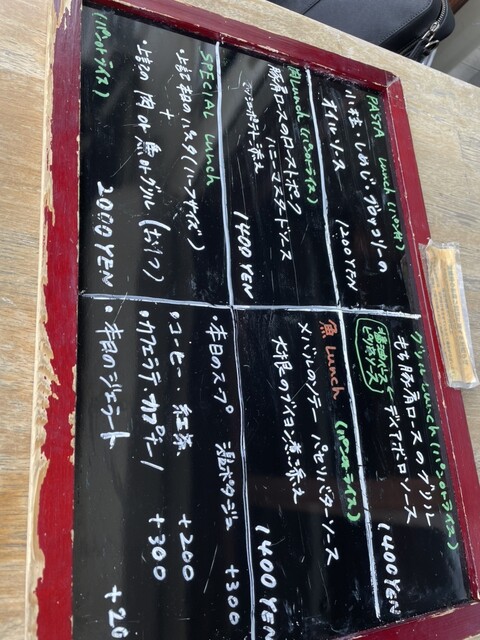 PASTA Lunch (パン付)
小柱・しめじ・ブロッコリーの
オイルソース
1200 YEN
肉 Lunch (パンorライス)
豚肩ロースのローストポーク
ハニーマスタードソース
フライドポテト添え
1400 YEN
SPECIAL Lunch
・上記本日のパスタ(ハーフサイズ)
+
・上記の肉or魚orグリル(おひとつ)
(パンorライス)
2000 YEN
グリル Lunch (パンorライス)
もち豚肩ロースのグリル
ディアボロソース
1400 YEN
魚 Lunch (パンorライス)
メバルのソテー パセリバターソース
大根のブイヨン煮添え
1400 YEN
・本日のスープ 温ポタージュ +300
・コーヒー・紅茶 +200
・カフェラテ カプチーノ +300
・本日のジェラート